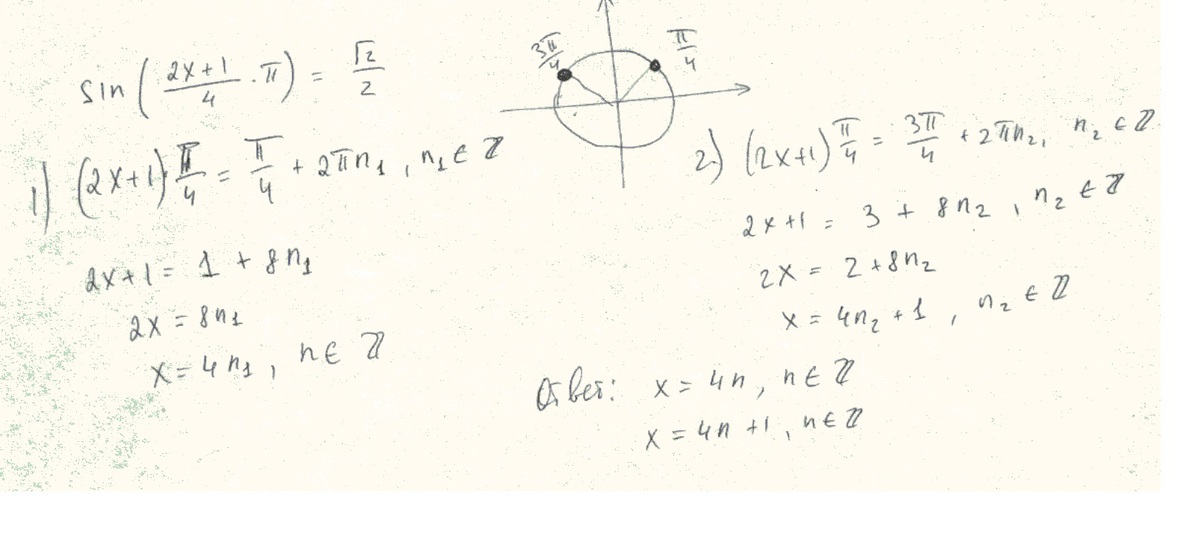 sin((2x+1)/4 · π) = √2/2
3π/4
π/4
1) (2x+1)·π/4 = π/4 + 2πn₁, n₁ ∈ ℤ
2x+1 = 1 + 8n₁
2x = 8n₁
x = 4n₁, n ∈ ℤ
2) (2x+1) π/4 = 3π/4 + 2πn₂, n₂ ∈ ℤ
2x+1 = 3 + 8n₂, n₂ ∈ ℤ
2x = 2 + 8n₂
x = 4n₂ + 1, n₂ ∈ ℤ
Ответ: x = 4n, n ∈ ℤ
x = 4n + 1, n ∈ ℤ